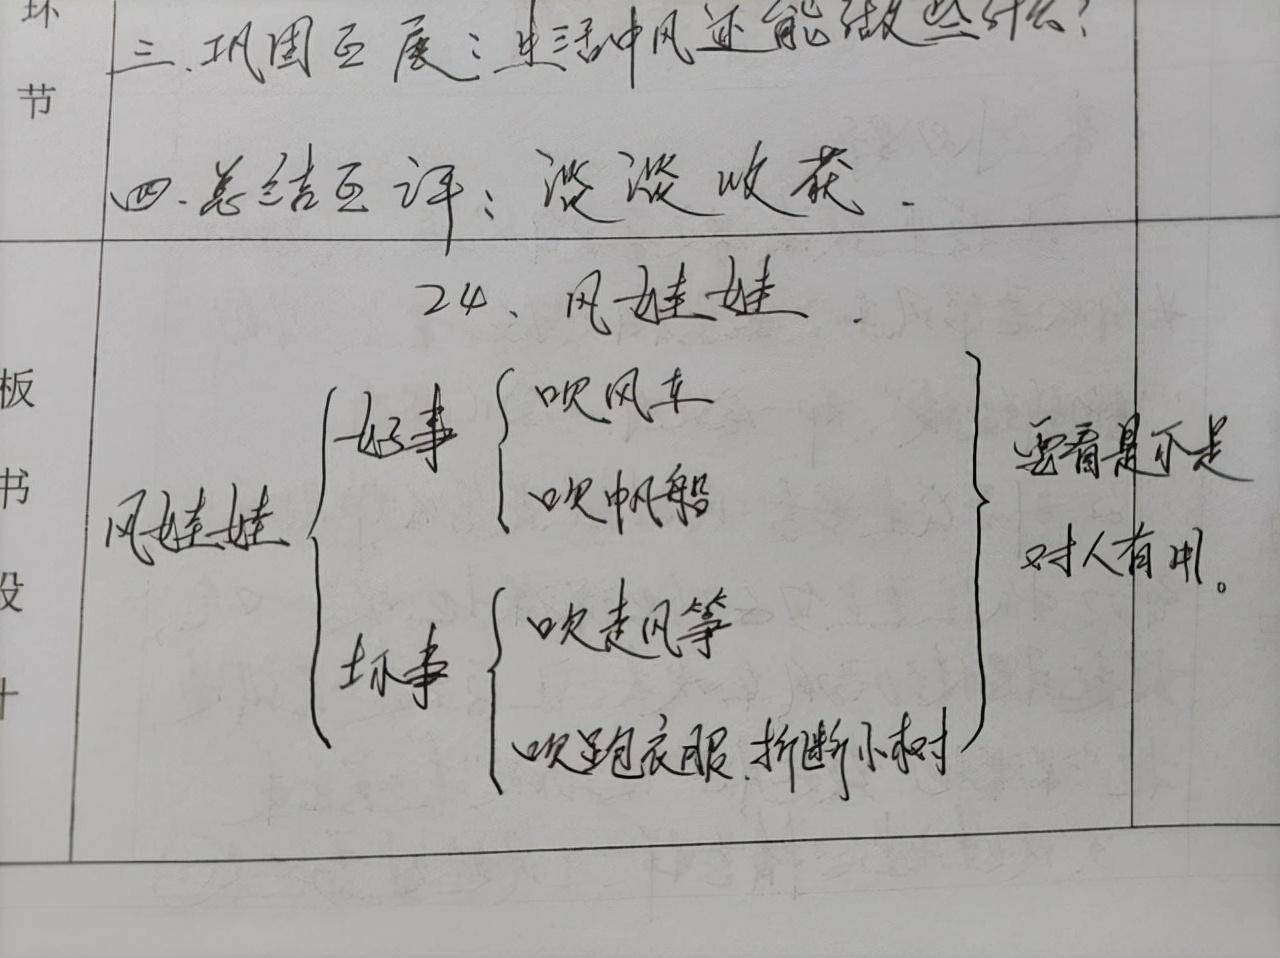 环
节
三.巩固互展：生活中风还能做些什么？
四.总结互评：谈谈收获.
板
书
设
计
24、风娃娃.
风娃娃
好事
吹风车
吹帆船
坏事
吹走风筝
吹跑衣服.折断小树
要看是不是
对人有用。